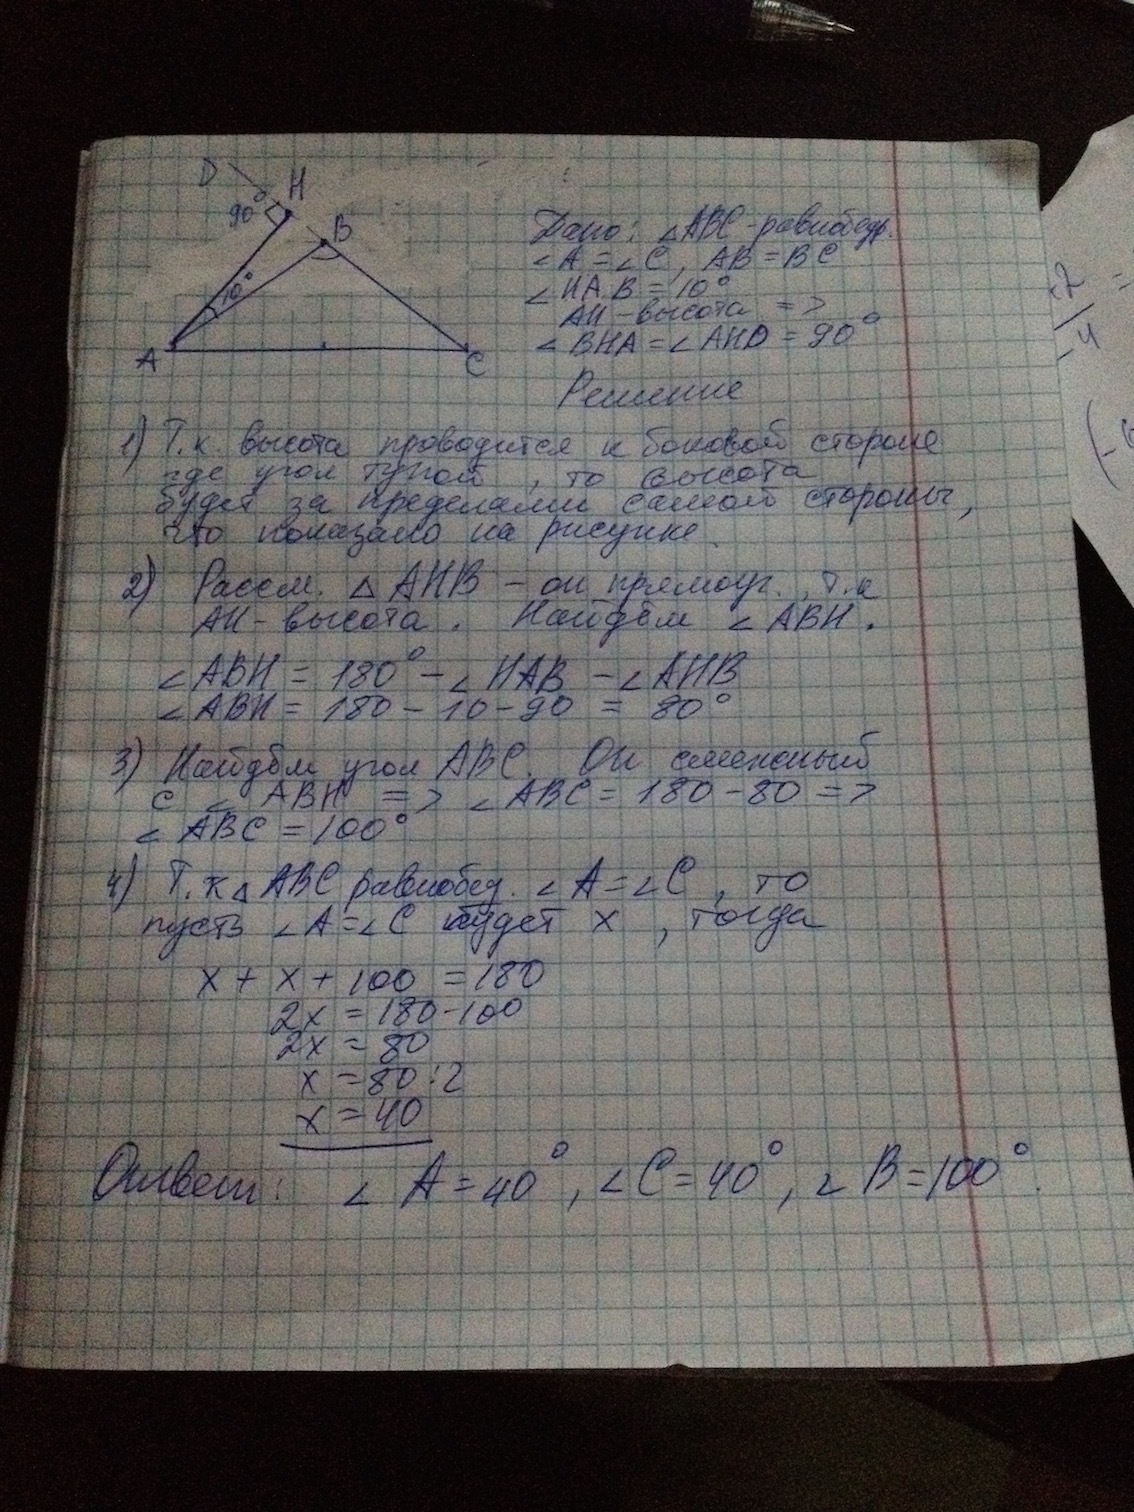 D
H
90°
B
10°
A
C
Дано: △ABC-равнобедр.
∠A = ∠C, AB = BC
∠HAB = 10°
AH-высота =>
∠BHA = ∠AHD = 90°
Решение
1) Т.к. высота проводится к боковой стороне
где угол тупой, то высота
будет за пределами самой стороны,
что показано на рисунке.
2) Рассм. △AHB - он прямоуг., т.к
AH-высота. Найдём ∠ABH.
∠ABH = 180° - ∠HAB - ∠AHB
∠ABH = 180 - 10 - 90 = 80°
3) Найдём угол ABC. Он смежный
с ∠ABH => ∠ABC = 180 - 80 =>
∠ABC = 100°
4) Т.к △ABC равнобед. ∠A = ∠C, то
пусть ∠A = ∠C будет x, тогда
x + x + 100 = 180
2x = 180-100
2x = 80
x = 80 : 2
x = 40
Ответ: ∠A = 40°, ∠C = 40°, ∠B = 100°.